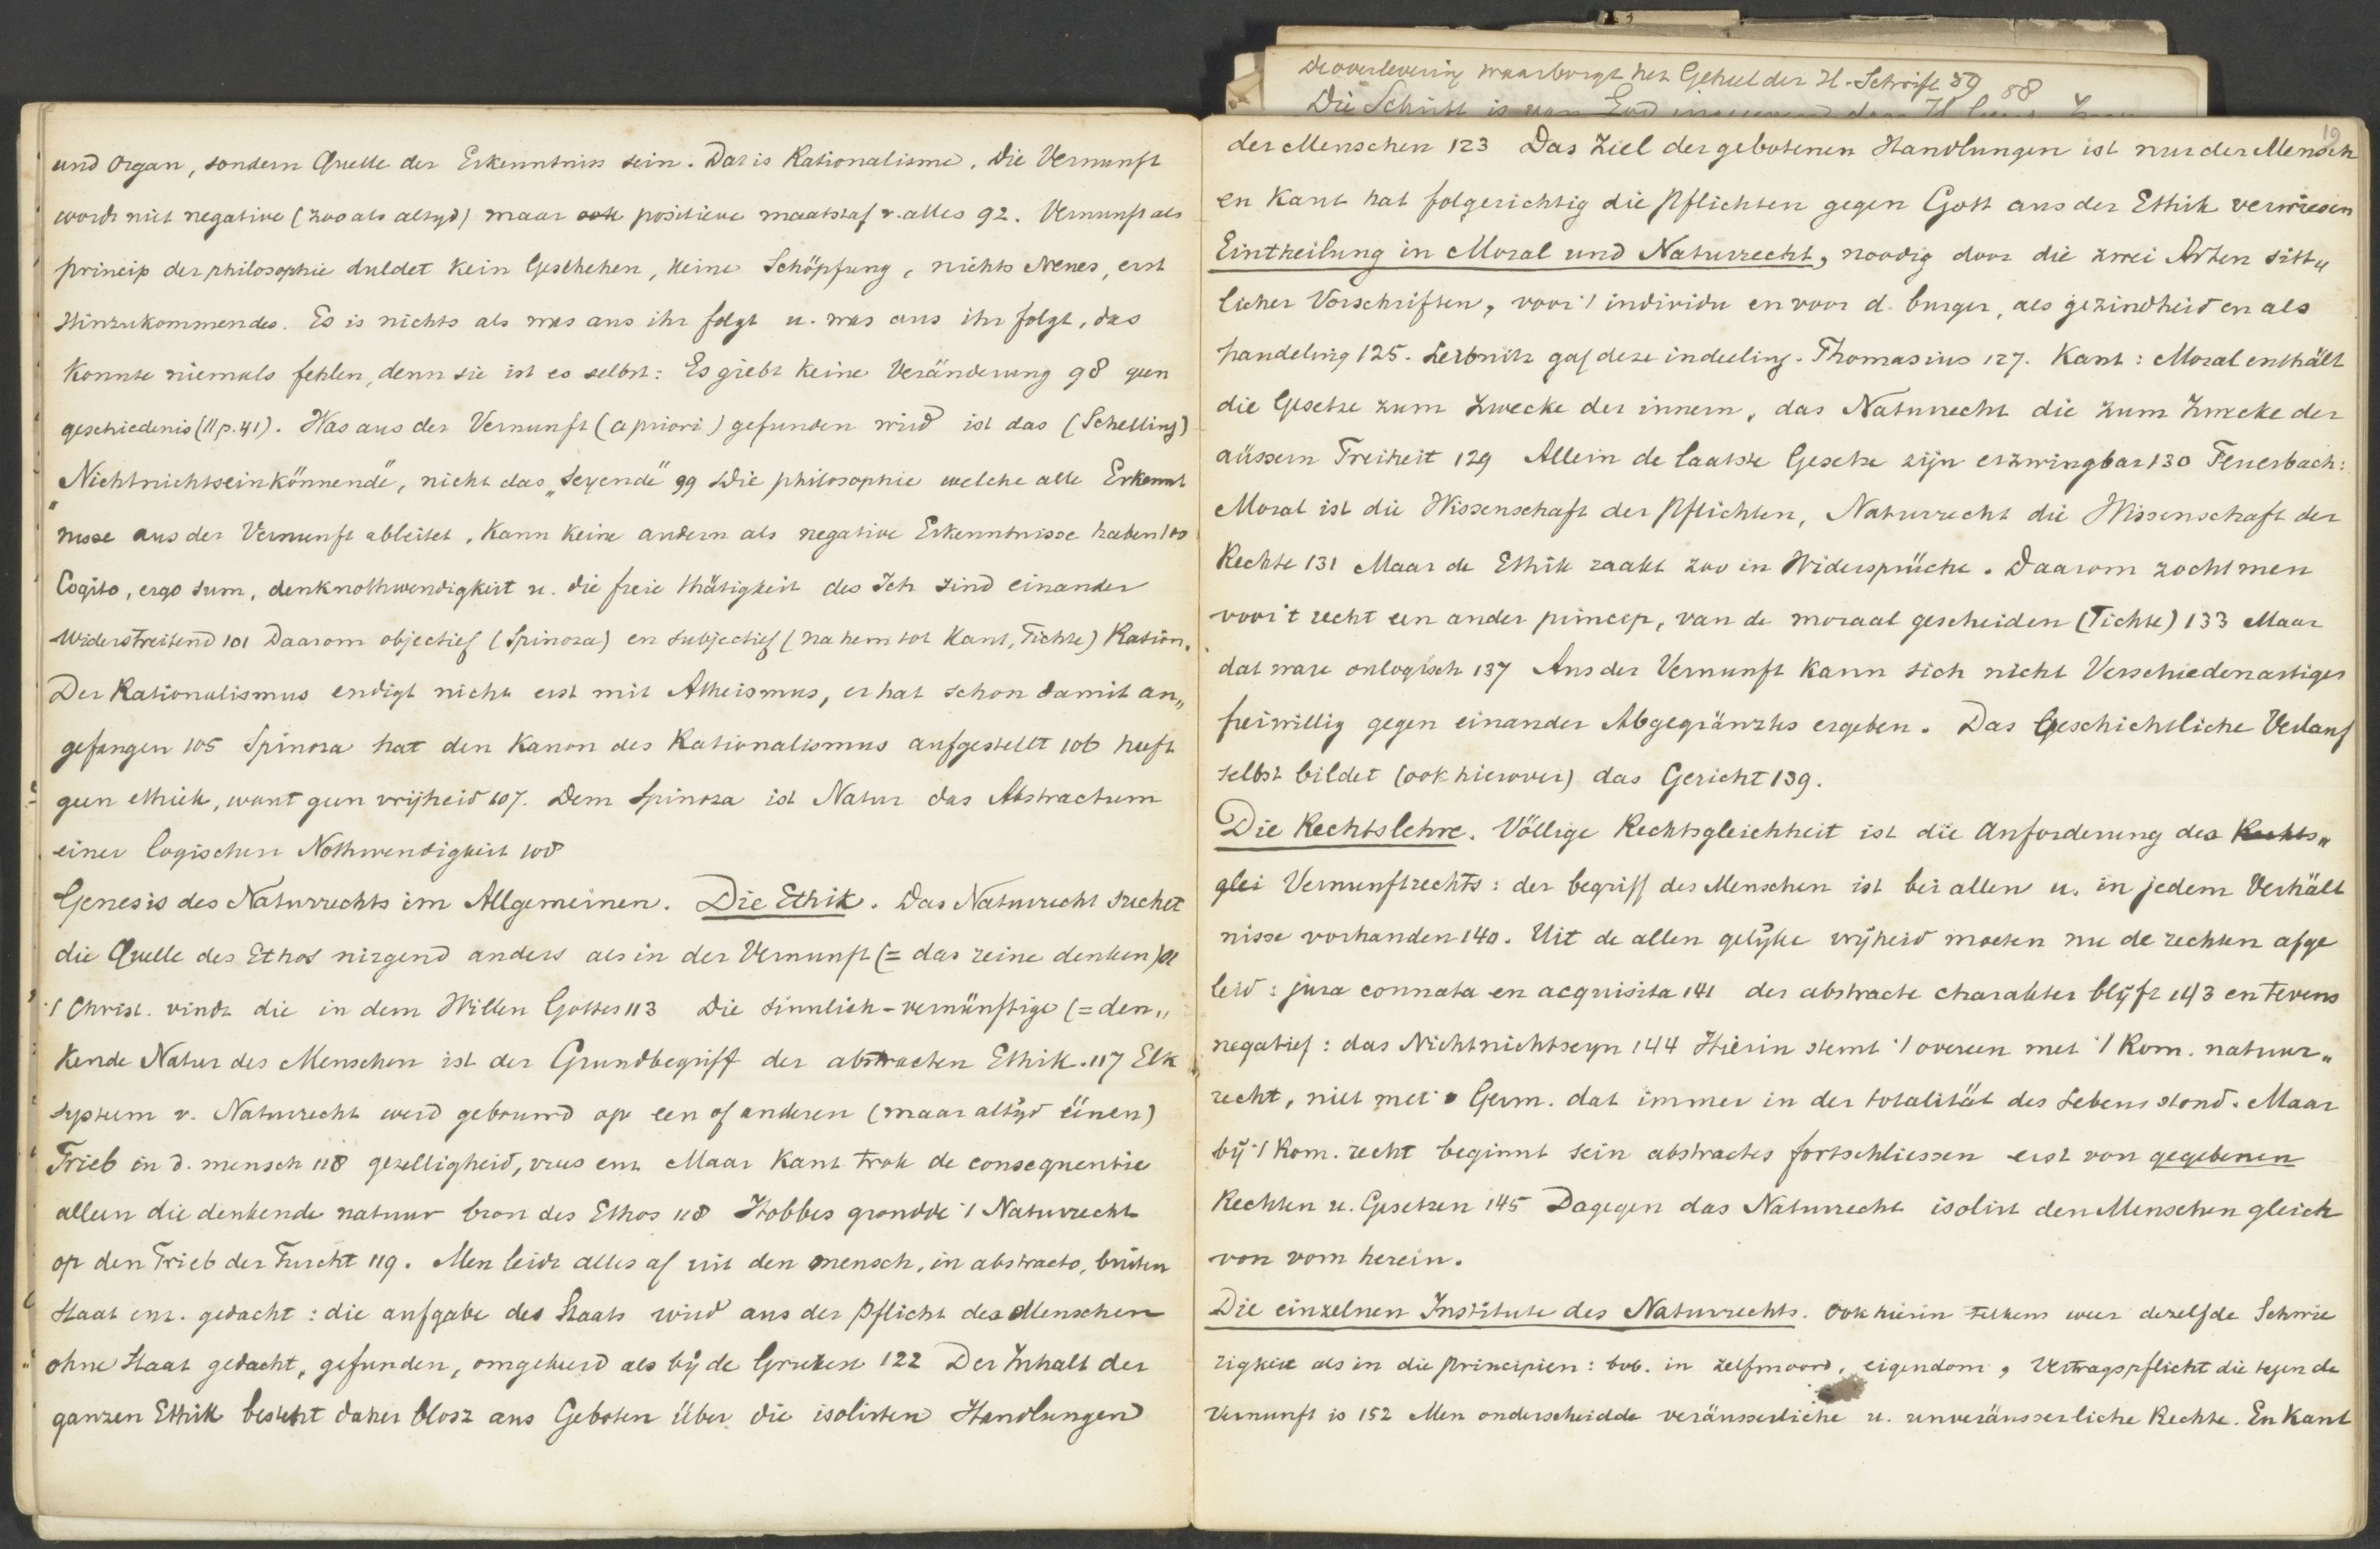 und Organ, sondern Quelle der Erkenntniss sein. Das is Rationalisme. Die Vernunft
wordt niet negative (zooals altyd) maar ook positieve maatstaf v. alles 92. Vernunft als
princip der philosophie duldet kein Geschehen, keine Schöpfung, nichts Neues, erst
Hinzukommendes. Es is nichts als was aus ihr folgt u. was aus ihr folgt, das
konnte niemals fehlen, denn sie ist es selbst: Es giebt keine Veränderung 98 geen
geschiedenis (II p. 41). Was aus der Vernunft (a priori) gefunden wird ist das (Schelling)
"Nichtnichtseinkönnende", nicht das "Seyende" 99 Die philosophie welche alle Erkennt
nisse aus der Vernunft ableitet, kann keine andern als negative Erkenntnisse haben 100
Cogito, ergo sum, denknothwendigkeit u. die freie thätigkeit des Ich sind einander
widerstreitend 101 Daarom objectief (Spinoza) en subjectief (na hem tot Kant, Fichte) Ration.
Der Rationalismus endigt nicht erst mit Atheismus, er hat schon damit an„
gefangen 105 Spinoza hat den Kanon des Rationalismus aufgestellt 106 heeft
geen ethiek, want geen vrijheid 107. Dem Spinoza ist Natur das Abstractum
einer logischen Nothwendigkeit 108
Genesis des Naturrechts im Allgemeinen. Die Ethik. Das Naturrecht suchet
die Quelle des Ethos nirgend anders als in der Vernunft (= das reine denken)
't Christ. vindt die in dem Willen Gottes 113 Die sinnlich-vernünftige (= den„
kende Natur des Menschen ist der Grundbegriff der abstracten Ethik. 117 Elk
systeem v. Naturrecht werd gebouwd op een of anderen (maar altyd éénen)
Trieb in d. mensch 118 gezelligheid, vrees enz Maar Kant trok de consequentie
alleen die denkende natuur bron des Ethos 118 Hobbes grondde 't Naturrecht
op den Trieb der Furcht 119. Men leidt alles af uit den mensch, in abstracto, buiten
Staat enz. gedacht: die aufgabe des Staats wird aus der Pflicht des Menschen
ohne Staat gedacht, gefunden, omgekeerd als bij de Grieken 122 Der Inhalt der
ganzen Ethik besteht daher blosz aus Geboten über die isolirten Handlungen
De overlevering waarborgt het Geheel der H. Schrift 59 58
Die Schrift is van God
19
der Menschen 123 Das Ziel der gebotenen Handlungen ist nur der Mensch
en Kant hat folgerichtig die Pflichten gegen Gott aus der Ethik verwiesen
Eintheilung in Moral und Naturrecht, noodig door die zwei Arten sitt„
licher Vorschriften, voor 't individu en voor d. burger, als gezindheid en als
handeling 125. Leibnitz gaf deze indeeling. Thomasius 127. Kant: Moral enthält
die Gesetze zum Zwecke der innern, das Naturrecht die zum Zwecke der
aüssern Freiheit 129 Allein de laatste Gesetze zijn erzwingbar 130 Feuerbach:
Moral ist die Wissenschaft der Pflichten, Naturrecht die Wissenschaft der
Rechte 131 Maar de Ethik raakt zoo in Widersprüche. Daarom zocht men
voor 't recht een ander princip, van de moraal gescheiden (Fichte) 133 Maar
dat ware onlogisch 137 Aus der Vernunft kann sich nicht Verschiedenartiges
freiwillig gegen einander Abgegränztes ergeben. Das Geschichtliche Verlauf
selbst bildet (ook hierover) das Gericht 139.
Die Rechtslehre. Völlige Rechtsgleichheit ist die Anforderung des Rechts„
glei Vernunftrechts: der begriff des Menschen ist bei allen u. in jedem Verhält
nisse vorhanden 140. Uit de allen gelijke vrijheid moeten nu de rechten afge
leid: jura connata en acquisita 141 der abstracte charakter blijft 143 en tevens
negatief: das Nichtnichtseyn 144 Hierin stemt 't overeen met 't Rom. natuur„
recht, niet met Germ. dat immer in der totalität des Lebens stond. Maar
bij 't Rom. recht beginnt sein abstractes fortschliessen erst von gegebenen
Rechten u. Gesetzen 145 Dagegen das Naturrecht isolirt den Menschen gleich
von vorn herein.
Die einzelnen Institute des Naturrechts. Ook hierin telkens weer dezelfde Schwie
rigkeit als in die principien: bvb. in zelfmoord, eigendom, Vertragspflicht die tegen de
Vernunft is 152 Men onderscheidde veräusserliche u. unveräusserliche Rechte. En Kant